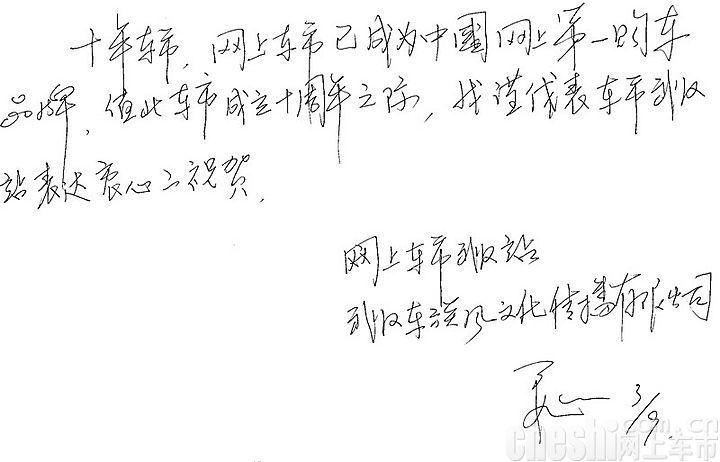 十年车市，网上车市已成为中國网上第一购车
品牌，值此车市成立十周年之际，我谨代表车市武汉
站表达衷心之祝贺.
网上车市武汉站
武汉车族风文化传播有限公司
3/9
cheshi.com.cn
网上车市